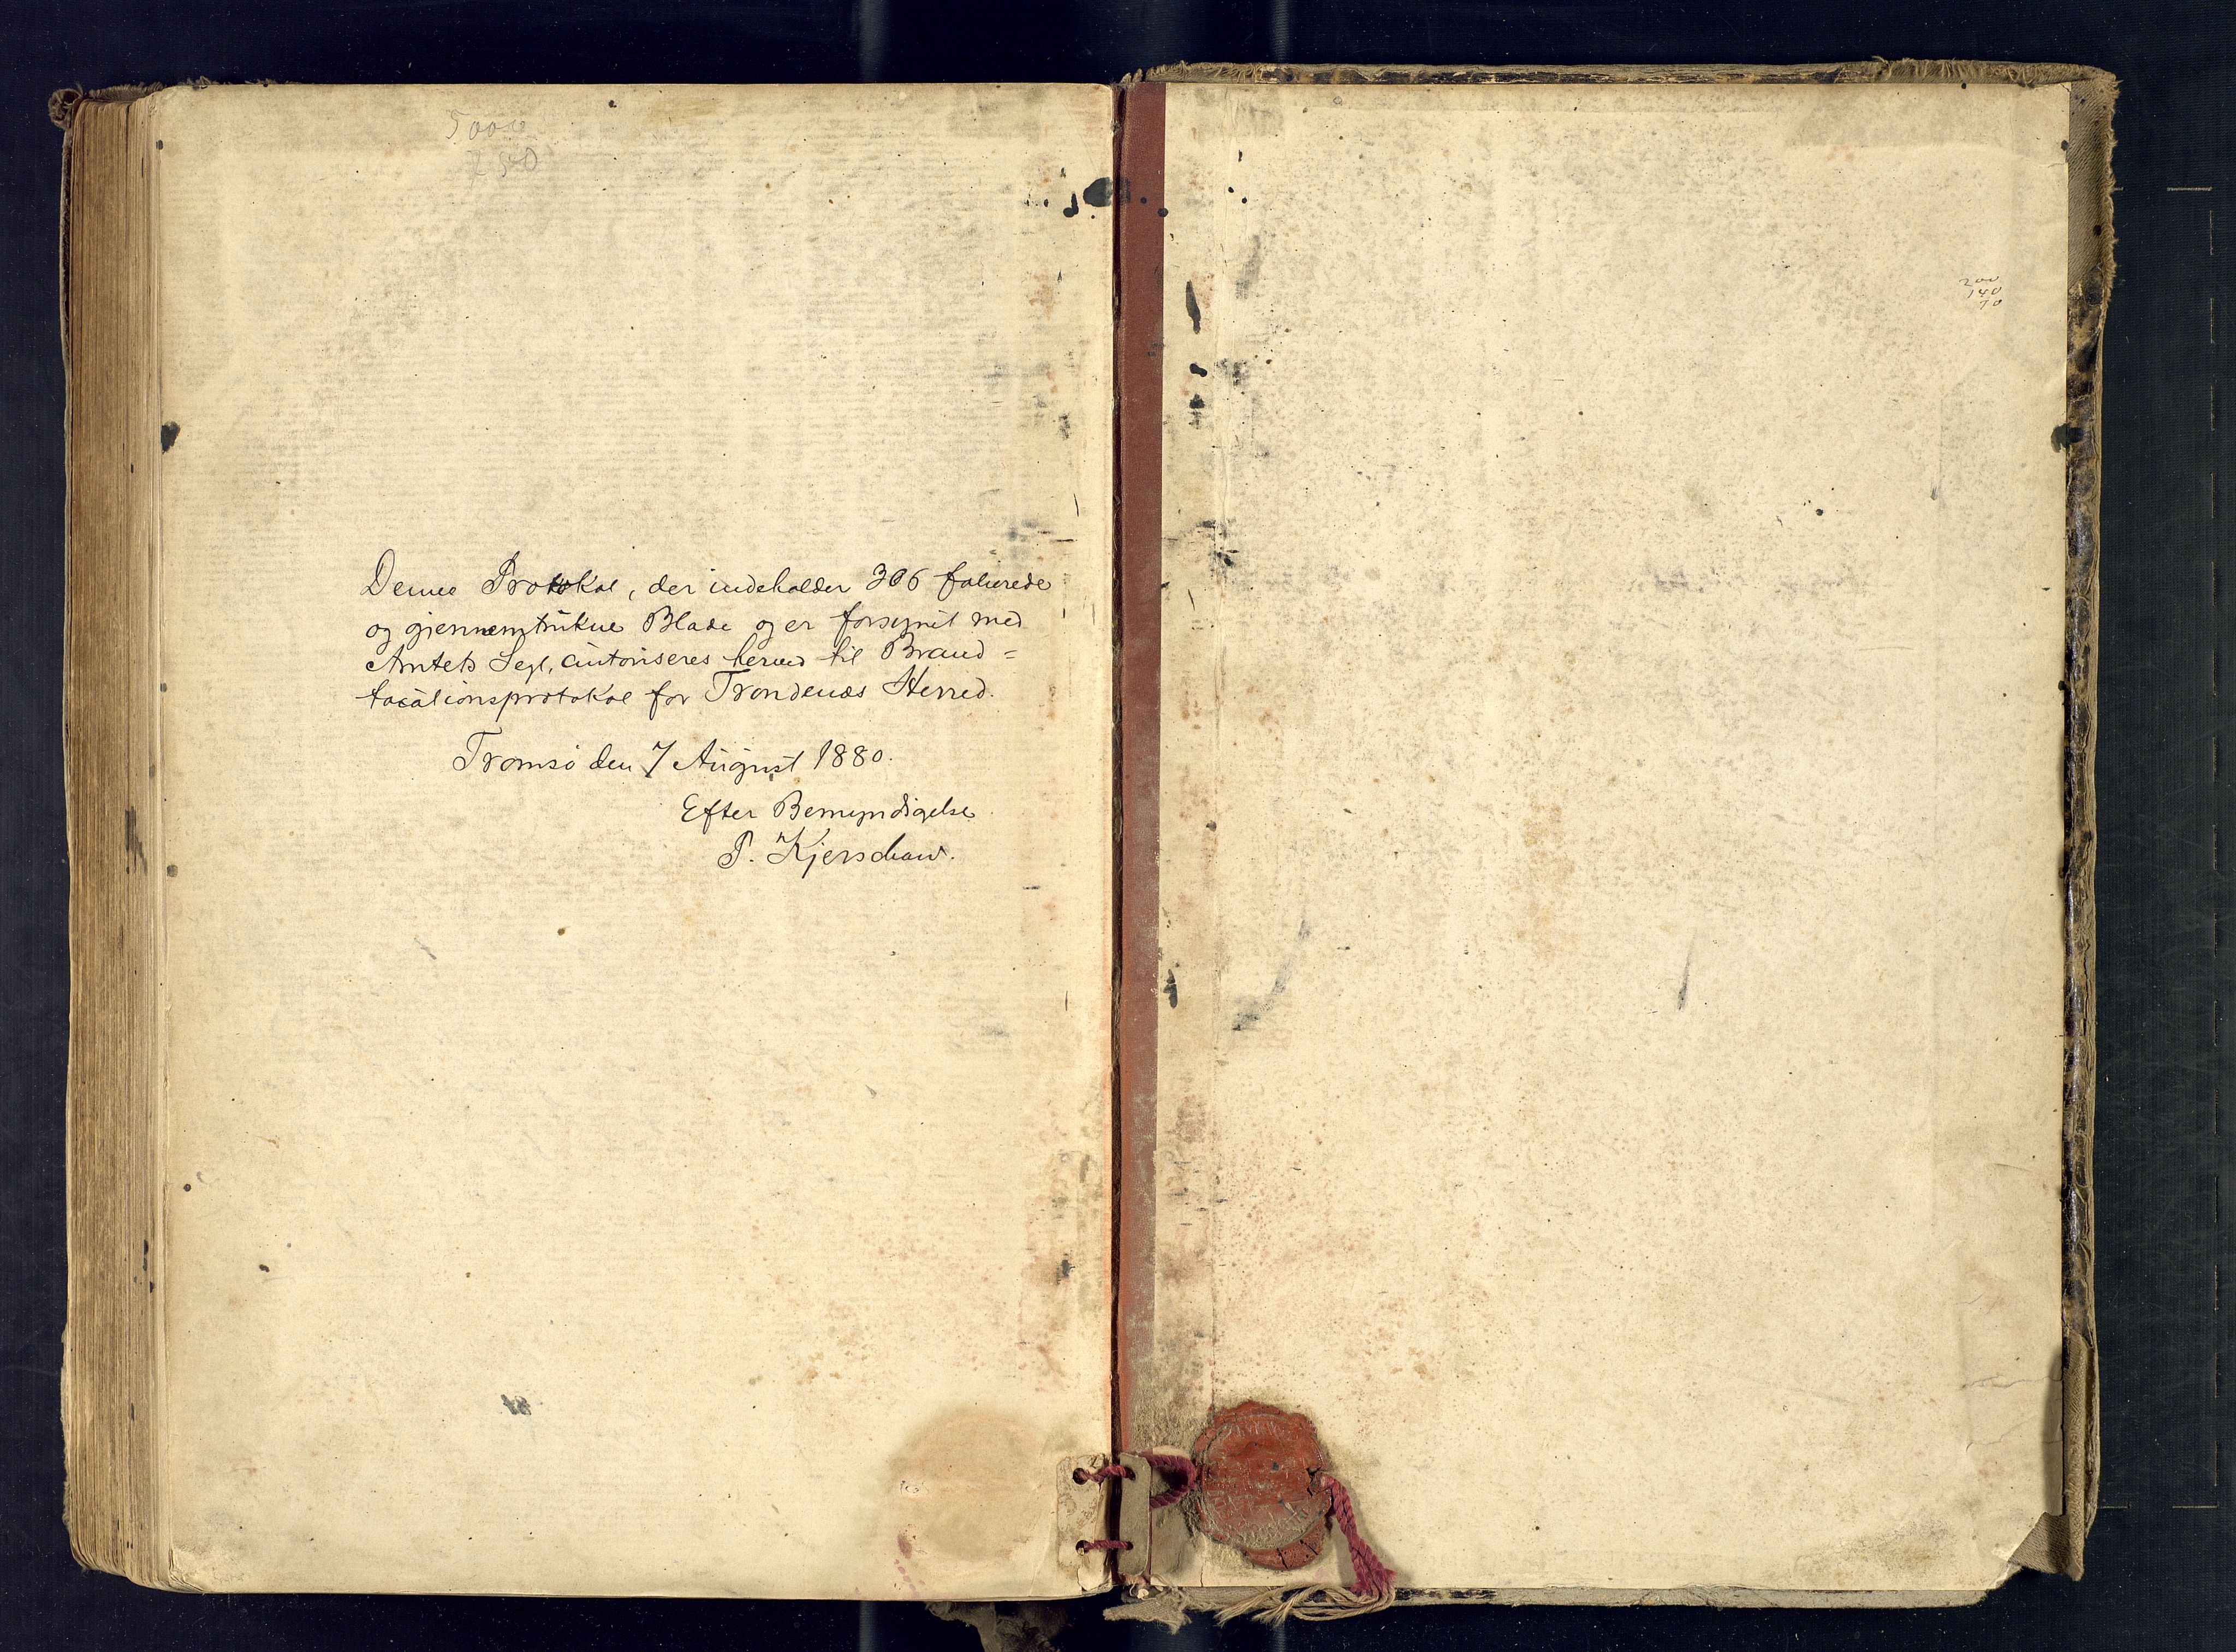 Denne Protokol, der indeholder 306 folierede
og gjennemtrukne Blade og er forsynet med
Amtets Segl, autoriseres herved til Brand=
taxationsprotokol for Trondenæs Herred.
Tromsö den 7 August 1880.
Efter Bemyndigelse
P. Kjerschow.
200
140
70